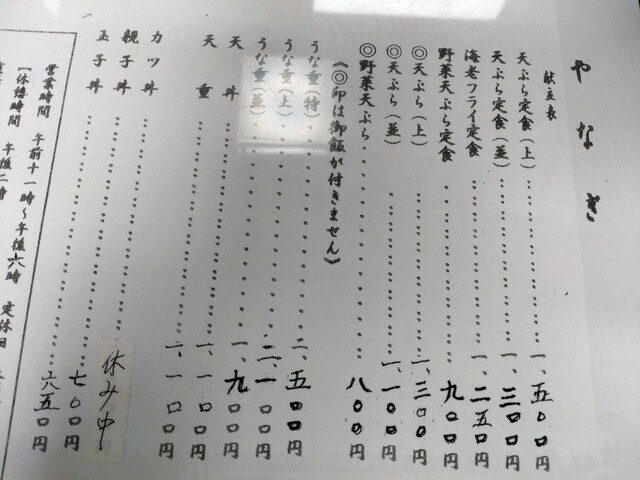 やなぎ
献立表
天ぷら定食(上)……一、五〇〇円
天ぷら定食(並)……一、三〇〇円
海老フライ定食……一、二五〇円
野菜天ぷら定食……九〇〇円
◎天ぷら(上)……一、三〇〇円
◎天ぷら(並)……一、一〇〇円
◎野菜天ぷら……八〇〇円
《◎印は御飯が付きません》
うな重(特)……二、五〇〇円
うな重(上)……二、一〇〇円
うな重(並)……一、九〇〇円
天丼……一、一〇〇円
天重……一、一〇〇円
カツ丼……休み中
親子丼……七〇〇円
玉子丼……六五〇円
営業時間 午前十一時〜午後六時 定休日
【休憩時間 午後二時